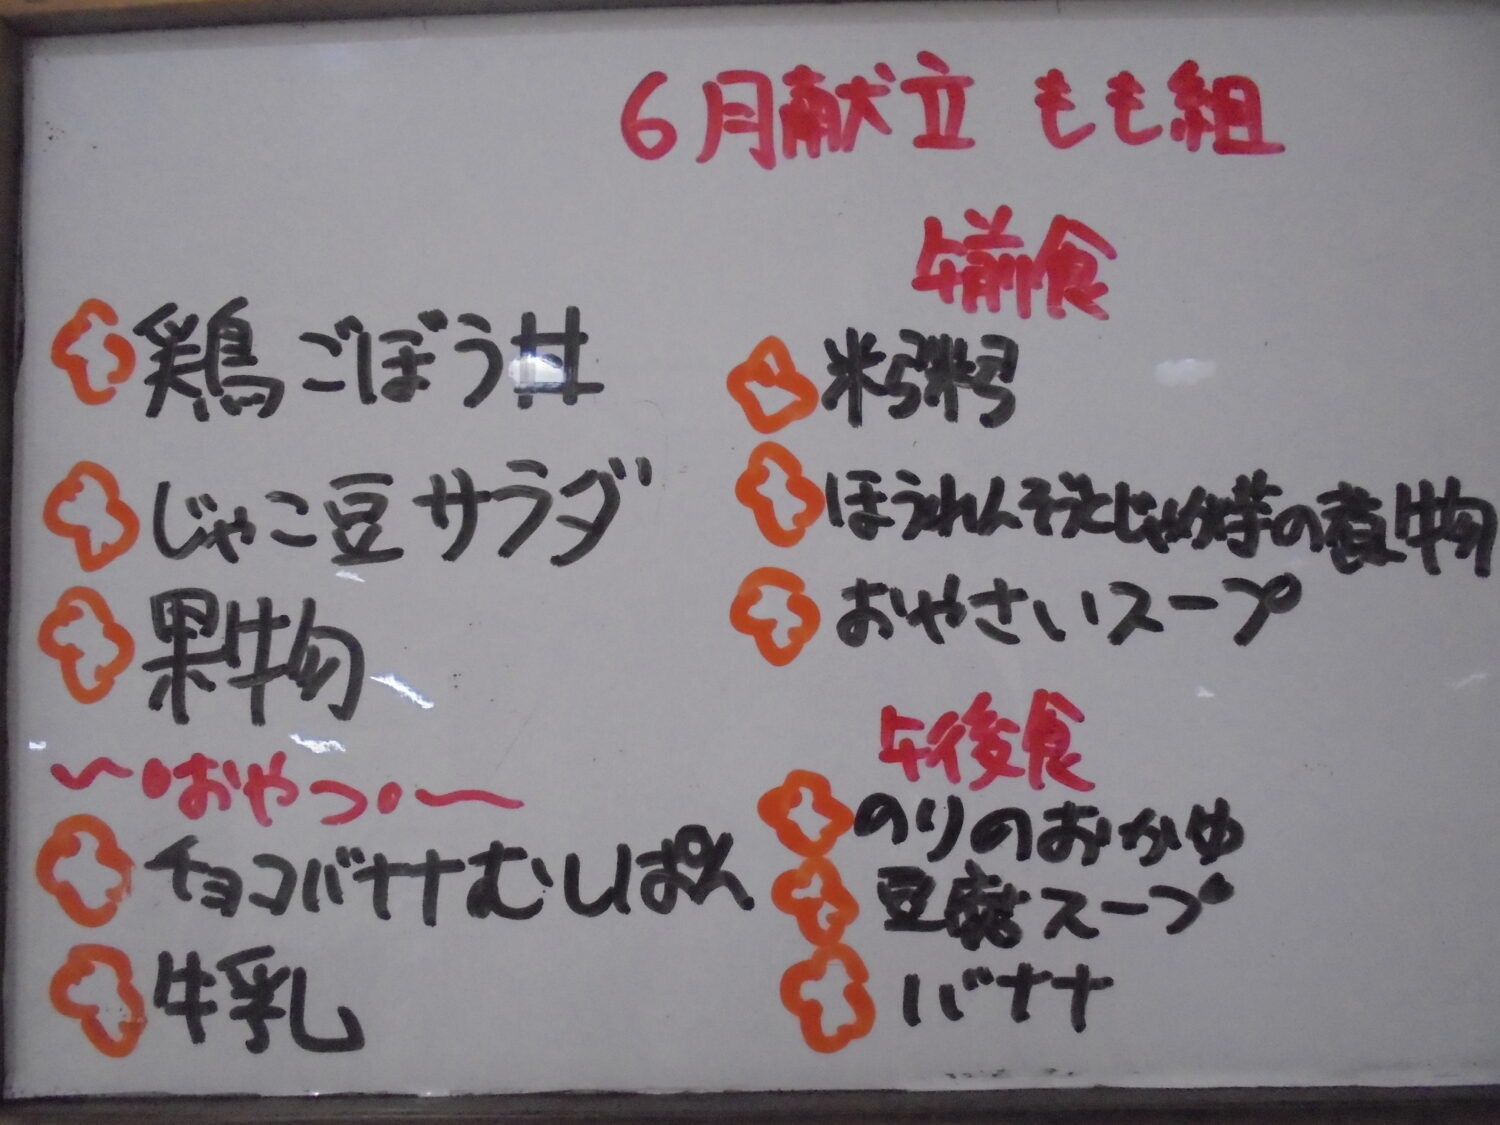 6月献立 もも組
鶏ごぼう丼
じゃこ豆サラダ
果物
～・おやつ・～
チョコバナナむしぱん
牛乳
午前食
米粥
ほうれんそうとじゃが芋の煮物
おやさいスープ
午後食
のりのおかゆ
豆腐スープ
バナナ